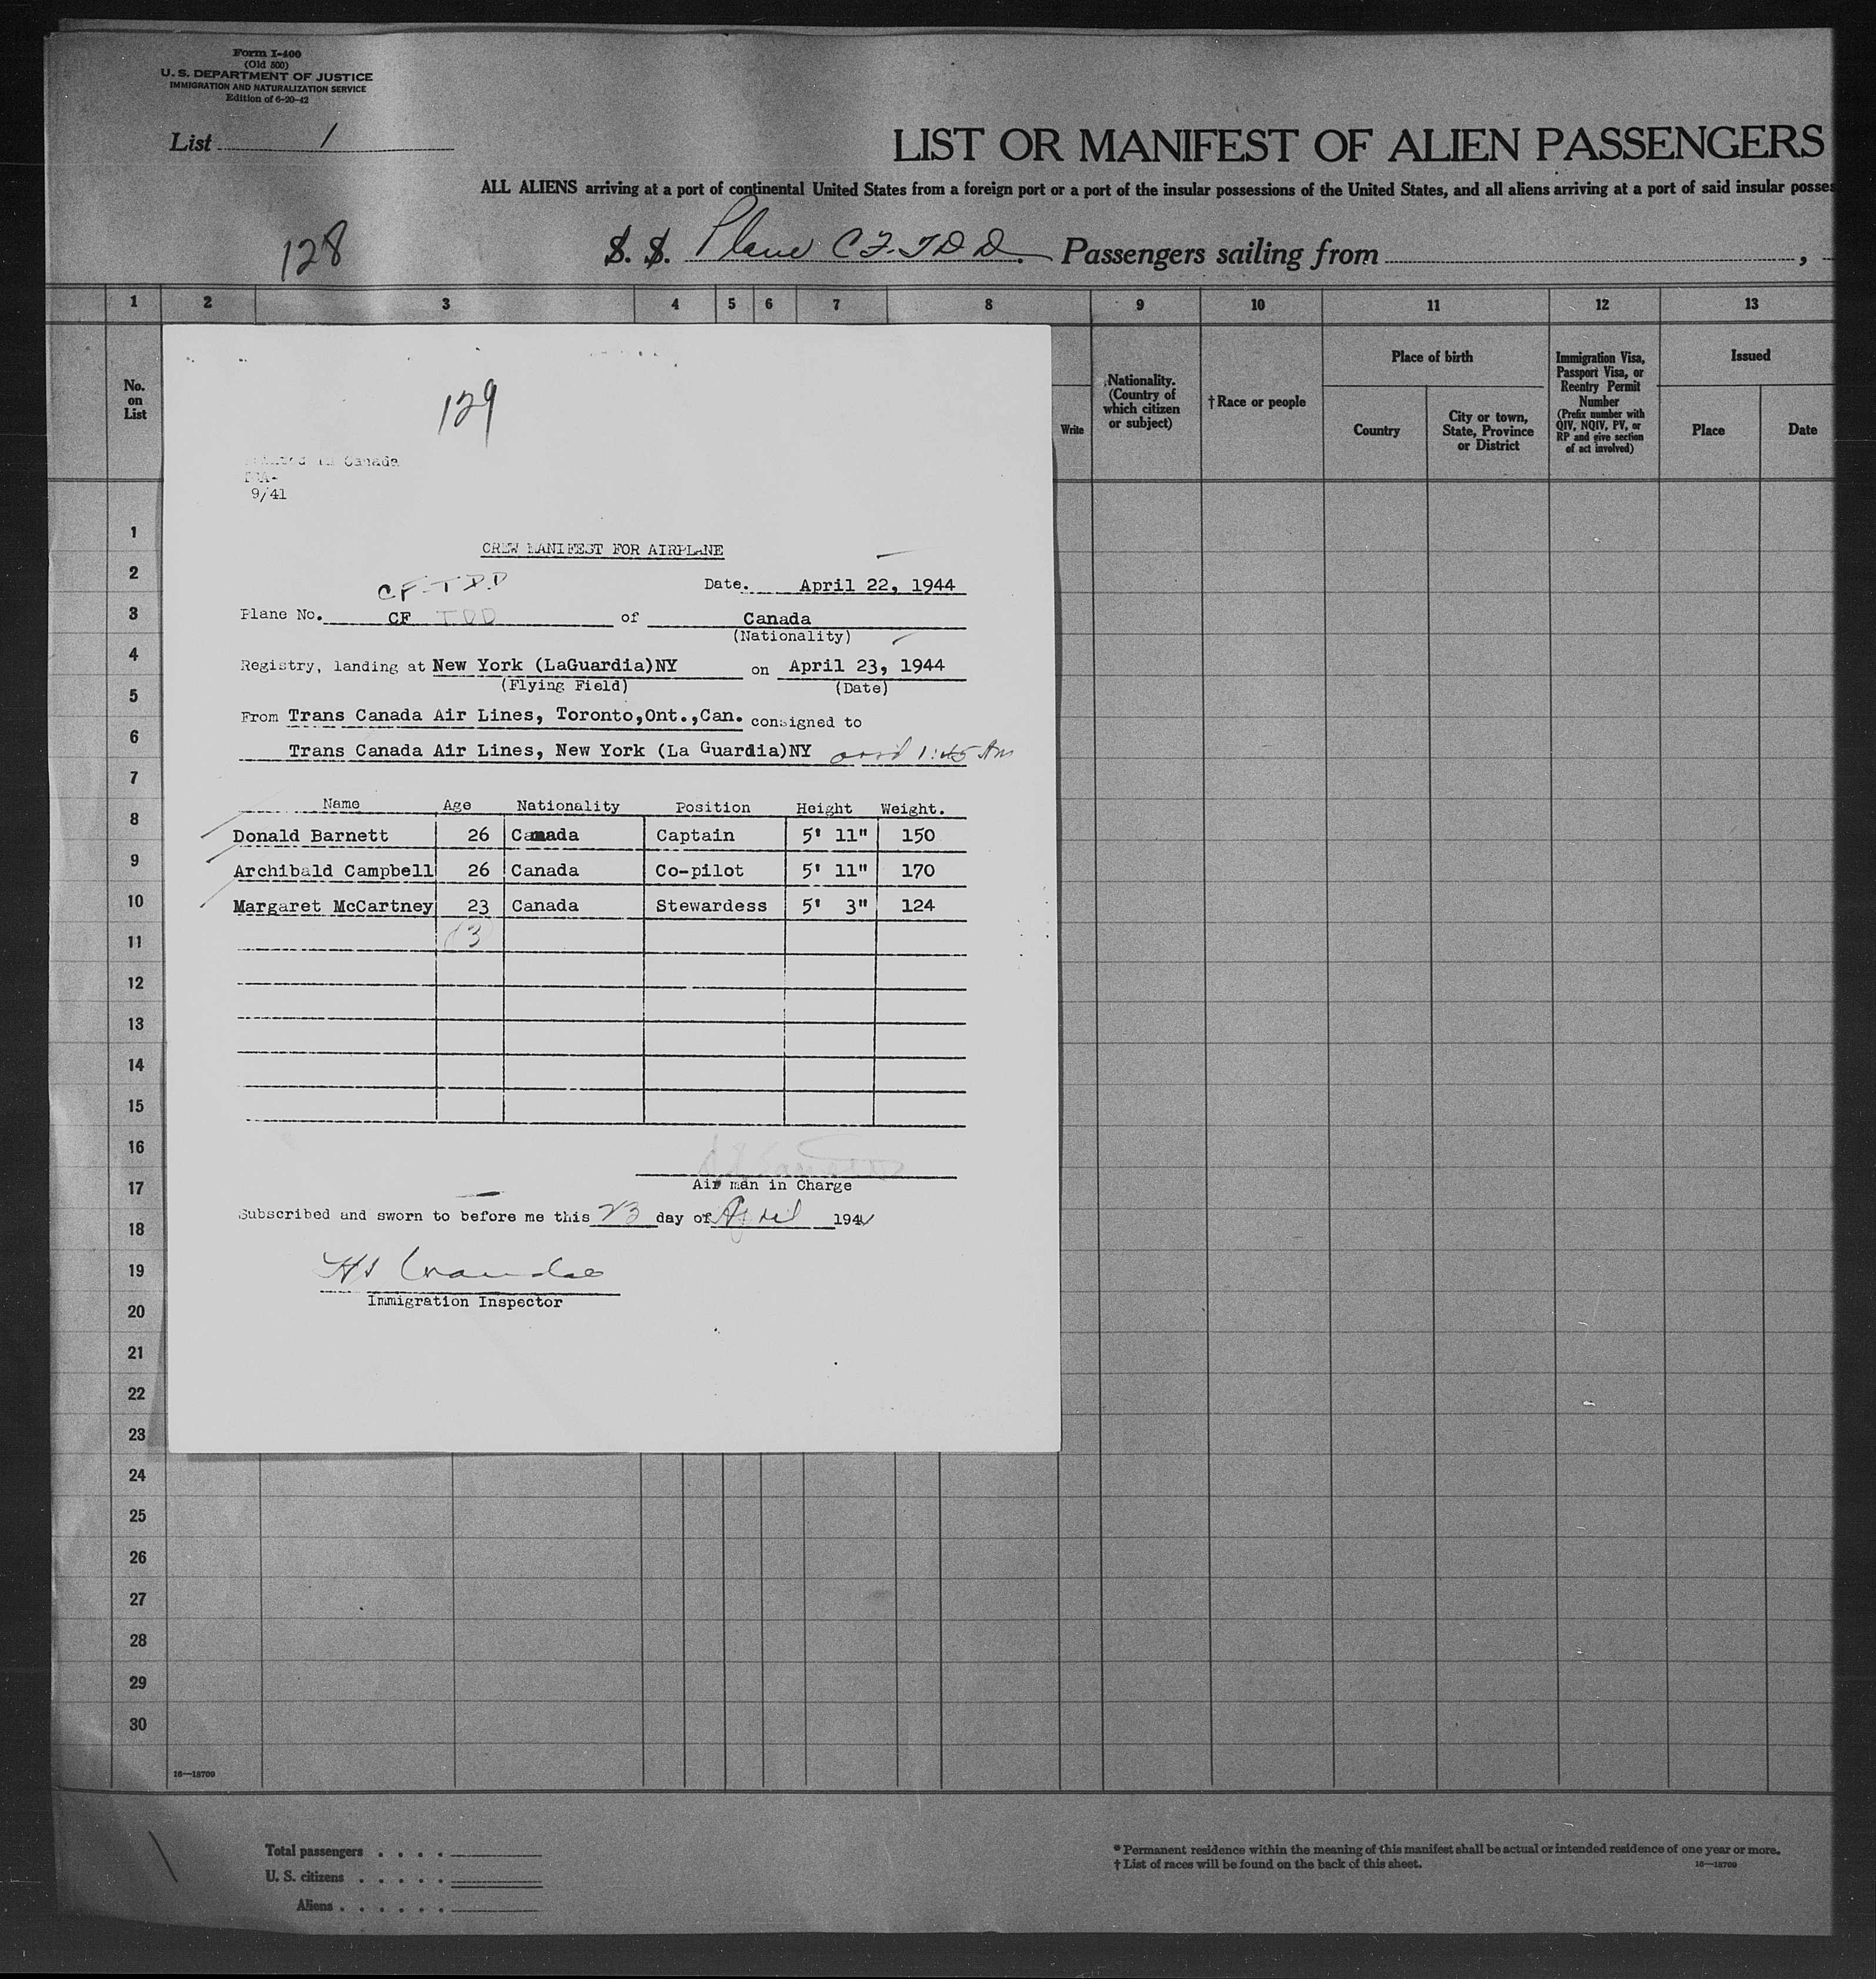 Form I-400
(Old 500)
U. S. DEPARTMENT OF JUSTICE
IMMIGRATION AND NATURALIZATION SERVICE
Edition of 6-20-42
List 1
LIST OR MANIFEST OF ALIEN PASSENGERS
ALL ALIENS arriving at a port of continental United States from a foreign port or a port of the insular possessions of the United States, and all aliens arriving at a port of said insular posses
128
S. S. Plane CF-TDD. Passengers sailing from ,
1 2 3 4 5 6 7 8 9 10 11 12 13
No.
on
List
Write
Nationality.
(Country of
which citizen
or subject)
† Race or people
Place of birth
Country
City or town,
State, Province
or District
Immigration Visa,
Passport Visa, or
Reentry Permit
Number
(Prefix number with
QIV, NQIV, PV, or
RP and give section
of act involved)
Issued
Place
Date
129
in Canada
9/41
CREW MANIFEST FOR AIRPLANE
CF-TDD
Date. April 22, 1944
Plane No. CF TDD of Canada
(Nationality)
Registry, landing at New York (LaGuardia)NY on April 23, 1944
(Flying Field) (Date)
From Trans Canada Air Lines, Toronto,Ont.,Can. consigned to
Trans Canada Air Lines, New York (La Guardia)NY arrd 1:45 Am
Name Age Nationality Position Height Weight.
Donald Barnett 26 Canada Captain 5' 11" 150
Archibald Campbell 26 Canada Co-pilot 5' 11" 170
Margaret McCartney 23 Canada Stewardess 5' 3" 124
(3)
Air man in Charge
Subscribed and sworn to before me this 23 day of April 1944
Immigration Inspector
1
2
3
4
5
6
7
8
9
10
11
12
13
14
15
16
17
18
19
20
21
22
23
24
25
26
27
28
29
30
16—18709
Total passengers . . . .
U. S. citizens . . . . .
Aliens . . . . . .
* Permanent residence within the meaning of this manifest shall be actual or intended residence of one year or more.
† List of races will be found on the back of this sheet.
16—18709